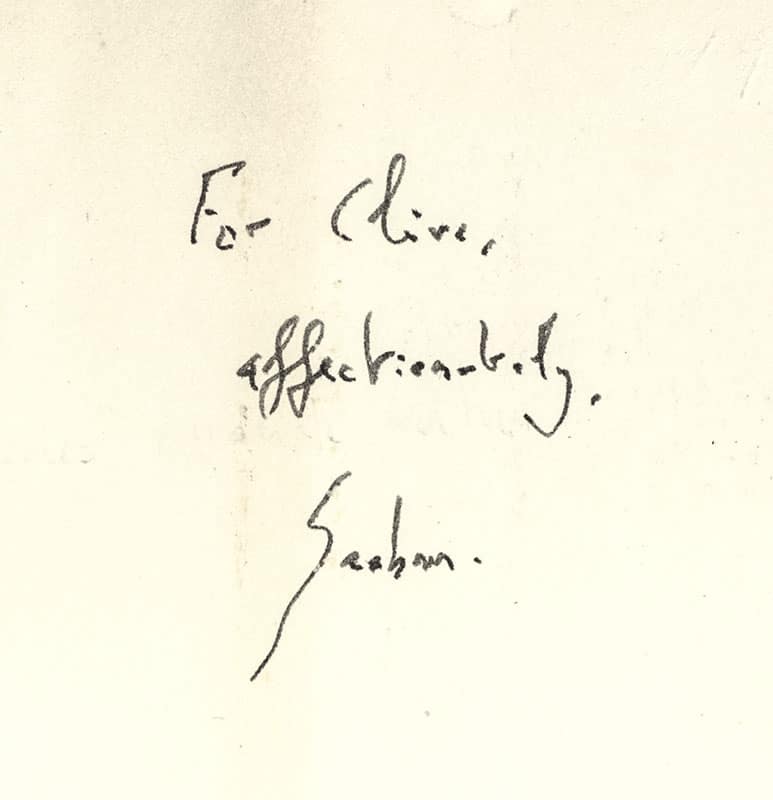 For Clive,
affectionately.
Graham.